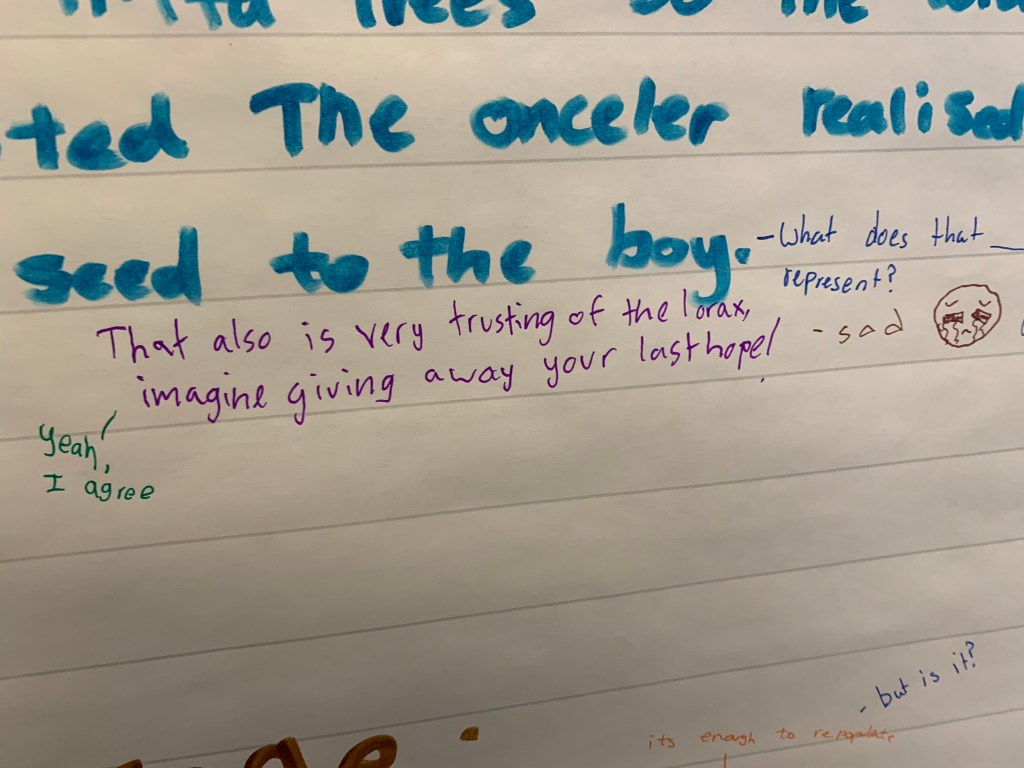 Trees so the
ted The onceler realised
seed to the boy.
- What does that
represent?
That also is very trusting of the lorax,
imagine giving away your last hope!
- sad
Yeah,
I agree
- but is it?
its enough to repopulate